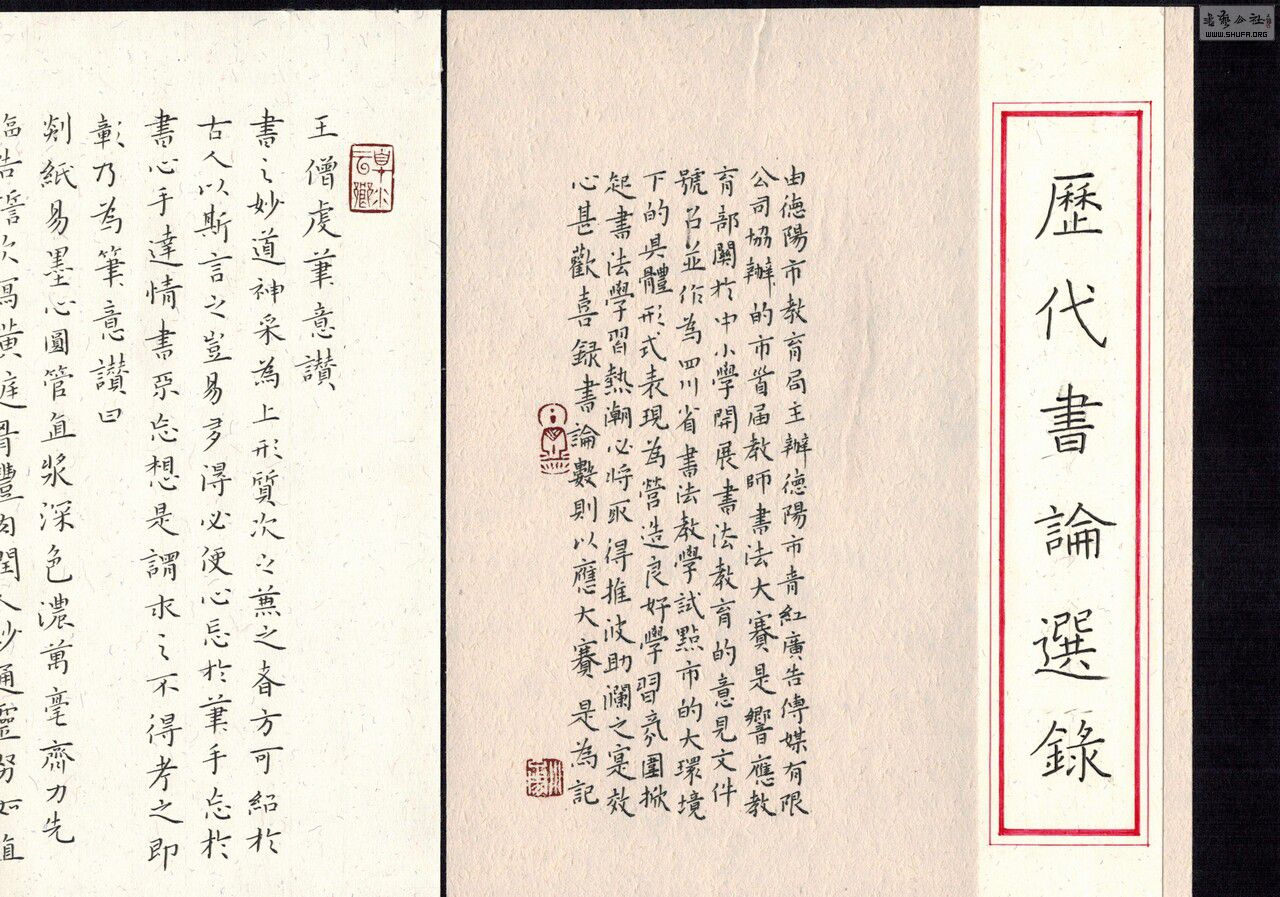 歷代書論選錄
由德陽市教育局主辦德陽市青紅廣告傳媒有限
公司協辦的市首届教師書法大賽是響應教
育部關於中小學開展書法教育的意見文件
號召並作為四川省書法教學試點市的大環境
下的具體形式表現為營造良好學習氛圍掀
起書法學習熱潮必將取得推波助瀾之寔效
心甚歡喜録書論數則以應大賽是為記
王僧虔筆意讃
書之妙道神采為上形質次之兼之者方可紹於
古人以斯言之豈易多得必使心忘於筆手忘於
書心手達情書不忘想是謂求之不得考之即
彰乃為筆意讃曰
剡紙易墨心圓管直漿深色濃萬毫齊力先
臨告誓次寫黄庭骨豐肉潤入妙通靈努如直
WWW.SHUFA.ORG